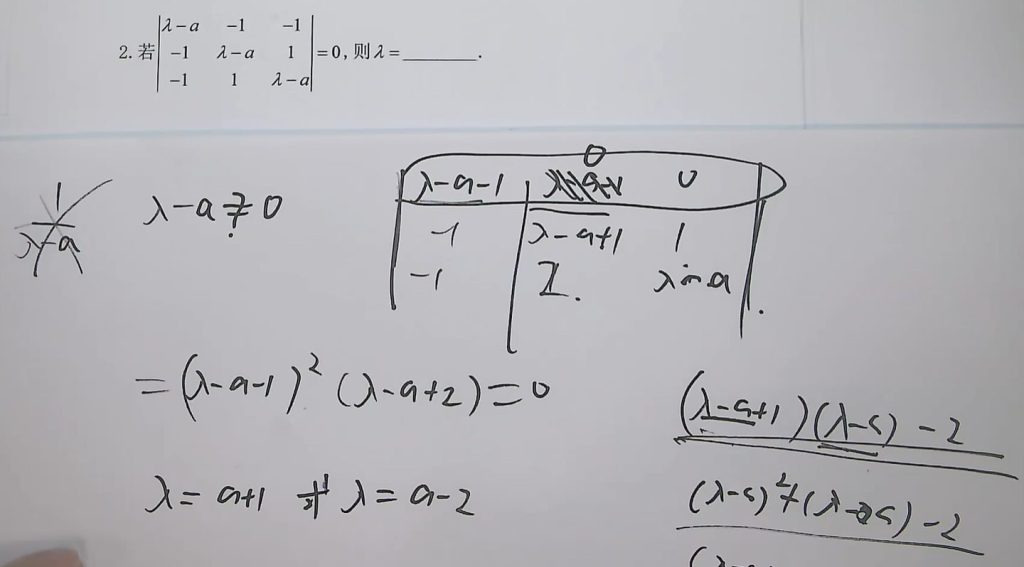 2. 若 |λ-a -1 -1|
|-1 λ-a 1| =0, 则λ=________.
|-1 1 λ-a|
1
λ-a
λ-a≠0
?
0
λ-a-1 0
-1 λ-a+1 1
-1 2. λ-a
=(λ-a-1)² (λ-a+2)=0
(λ-a+1)(λ-a)-2
λ=a+1 或 λ=a-2
(λ-a)²+(λ-a)-2